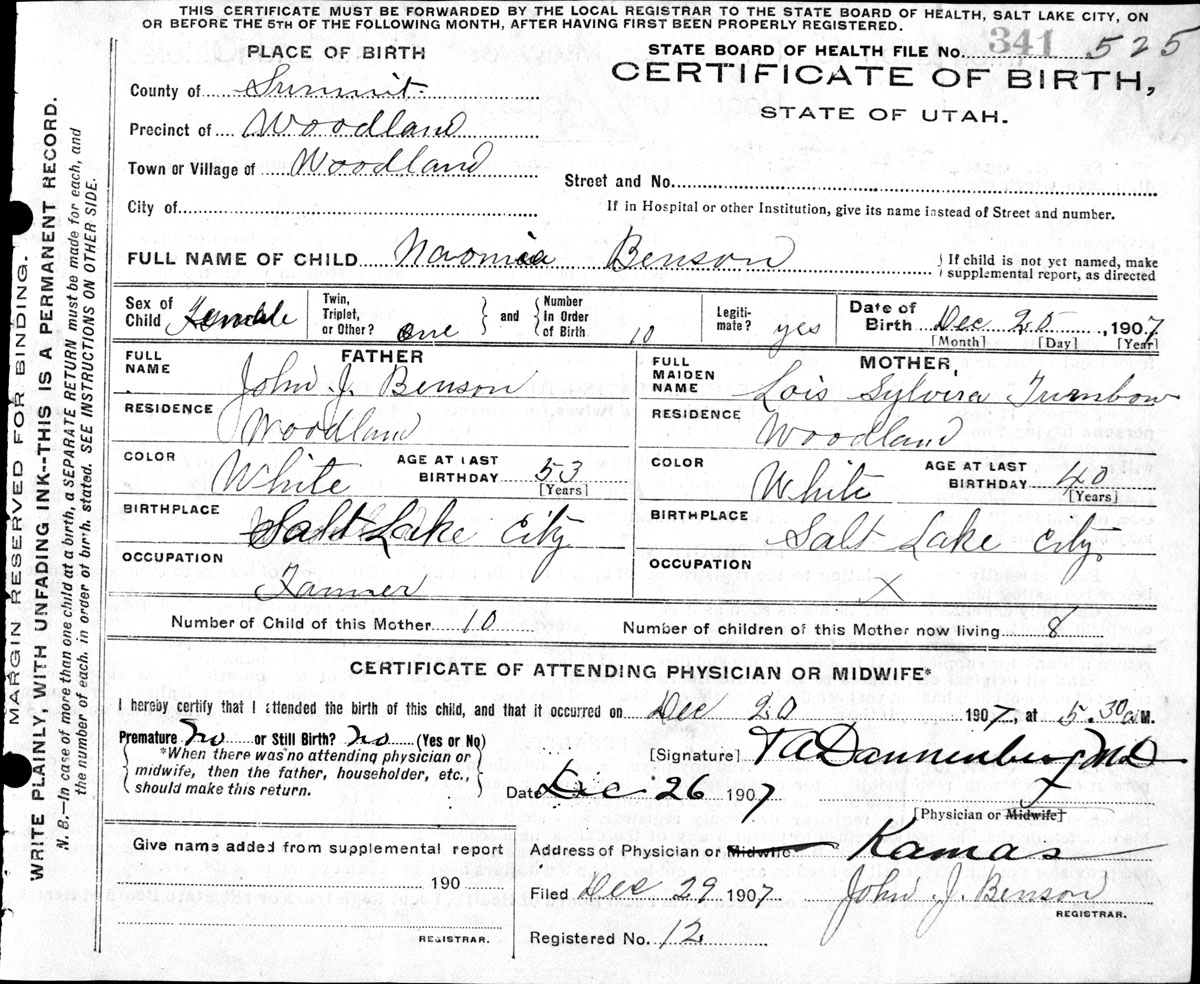 THIS CERTIFICATE MUST BE FORWARDED BY THE LOCAL REGISTRAR TO THE STATE BOARD OF HEALTH, SALT LAKE CITY, ON
OR BEFORE THE 5TH OF THE FOLLOWING MONTH, AFTER HAVING FIRST BEEN PROPERLY REGISTERED.
MARGIN RESERVED FOR BINDING.
WRITE PLAINLY, WITH UNFADING INK--THIS IS A PERMANENT RECORD.
N. B.—In case of more than one child at a birth, a SEPARATE RETURN must be made for each, and
the number of each, in order of birth, stated. SEE INSTRUCTIONS ON OTHER SIDE.
PLACE OF BIRTH
STATE BOARD OF HEALTH FILE No. 341 525
CERTIFICATE OF BIRTH,
STATE OF UTAH.
County of Summit
Precinct of Woodland
Town or Village of Woodland
Street and No.
City of
If in Hospital or other Institution, give its name instead of Street and number.
FULL NAME OF CHILD Naomia Benson
If child is not yet named, make
supplemental report, as directed
Sex of Child Female
Twin, Triplet, or Other? one
and
Number In Order of Birth 10
Legiti- mate? yes
Date of Birth Dec 20, 1907
[Month] [Day] [Year]
FATHER
FULL NAME John J. Benson
RESIDENCE Woodland
COLOR White
AGE AT LAST BIRTHDAY 53
[Years]
BIRTHPLACE Salt Lake City
OCCUPATION Farmer
MOTHER
FULL MAIDEN NAME Lois Sylvira Turnbow
RESIDENCE Woodland
COLOR White
AGE AT LAST BIRTHDAY 40
[Years]
BIRTHPLACE Salt Lake City
OCCUPATION X
Number of Child of this Mother 10
Number of children of this Mother now living 8
CERTIFICATE OF ATTENDING PHYSICIAN OR MIDWIFE*
I hereby certify that I attended the birth of this child, and that it occurred on Dec 20 1907, at 5.30 a.M.
Premature? No or Still Birth? No (Yes or No)
*When there was no attending physician or
midwife, then the father, householder, etc.,
should make this return.
[Signature] T A Dannenberg MD
Date Dec 26 1907
[Physician or Midwife]
Give name added from supplemental report
190
REGISTRAR.
Address of Physician or Midwife Kamas
Filed Dec 29 1907 John J. Benson
REGISTRAR.
Registered No. 12